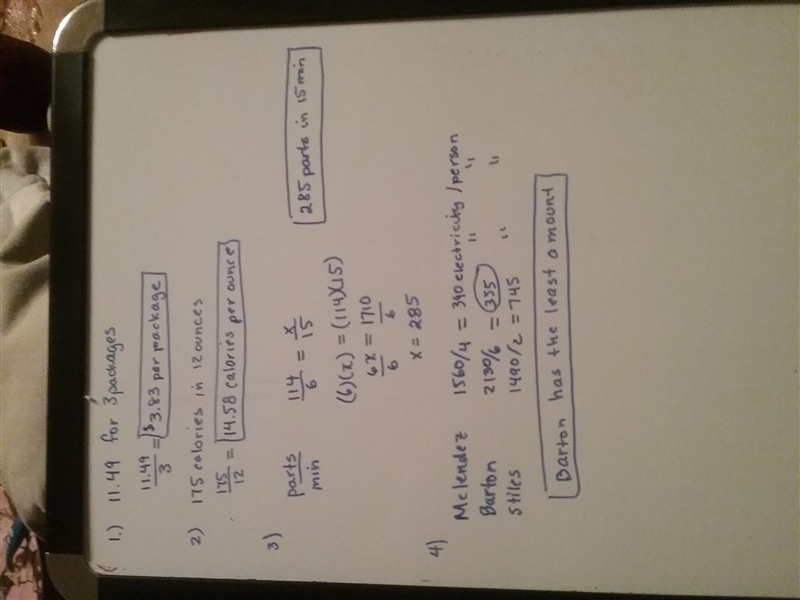 1.) 11.49 for 3 packages
11.49/3 = $3.83 per package
2) 175 calories in 12 ounces
175/12 = 14.58 calories per ounce
3)
parts/min 114/6 = x/15
(6)(x) = (114)(15)
6x/6 = 1710/6
x = 285
285 parts in 15 min
4)
Melendez 1560/4 = 390 electricity/person
Barton 2130/6 = 355 " "
Stiles 1490/2 = 745 " "
Barton has the least amount